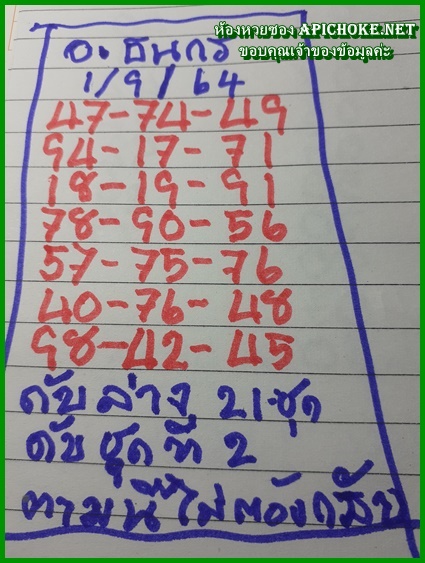 ห้องหวยซอง APICHOKE.NET
ขอบคุณเจ้าของข้อมูลค่ะ
อ. ธนกร
1/9/64
47-74-49
94-17-71
18-19-91
78-90-56
57-75-76
40-76-48
98-42-45
ดับล่าง 21 ชุด
ดับชุดที่ 2
ตามนี้ไม่ต้องกลับ